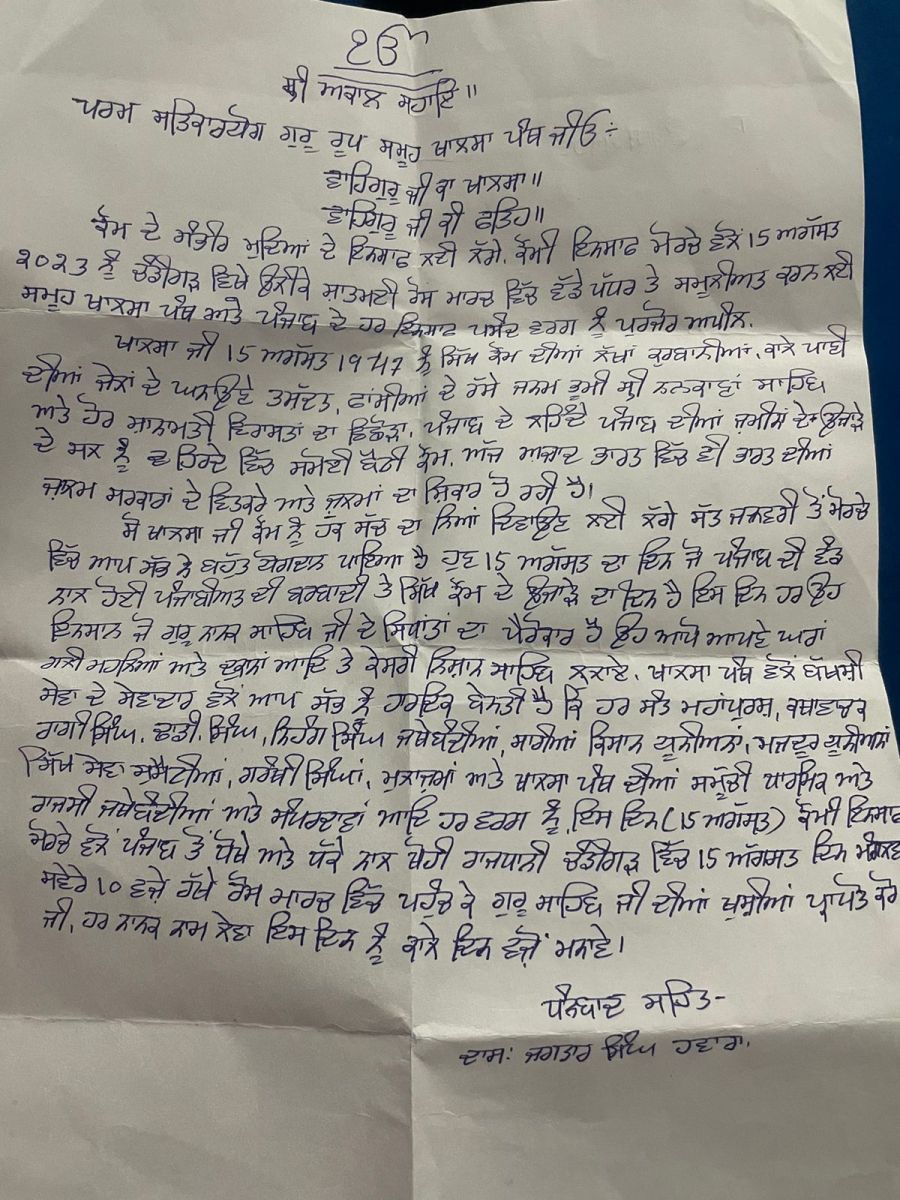 ੴ
ਸ਼੍ਰੀ ਅਕਾਲ ਸਹਾਇ॥
ਪਰਮ ਸਤਿਕਾਰਯੋਗ ਗੁਰੂ ਰੂਪ ਸਮੂਹ ਖਾਲਸਾ ਪੰਥ ਜੀਓ ÷
ਵਾਹਿਗੁਰੂ ਜੀ ਕਾ ਖਾਲਸਾ॥
ਵਾਹਿਗੁਰੂ ਜੀ ਕੀ ਫਤਿਹ॥
ਕੌਮ ਦੇ ਗੰਭੀਰ ਮੁਦਿਆਂ ਦੇ ਇਨਸਾਫ ਲਈ ਲੱਗੇ, ਕੌਮੀ ਇਨਸਾਫ ਮੋਰਚੇ ਵੱਲੋਂ 15 ਅਗੱਸਤ
੨੦੨੩ ਨੂੰ ਚੰਡੀਗੜ੍ਹ ਵਿਖੇ ਉਲੀਕੇ ਸ਼ਾਤਮਈ ਰੋਸ ਮਾਰਚ ਵਿੱਚ ਵੱਡੇ ਪੱਧਰ ਤੇ ਸਮੂਲੀਅਤ ਕਰਨ ਲਈ
ਸਮੂਹ ਖਾਲਸਾ ਪੰਥ ਅਤੇ ਪੰਜਾਬ ਦੇ ਹਰ ਇਨਸਾਫ ਪਸੰਦ ਵਰਗ ਨੂੰ ਪੁਰਜੋਰ ਅਪੀਲ.
ਖਾਲਸਾ ਜੀ 15 ਅਗੱਸਤ 1947 ਨੂੰ ਸਿੱਖ ਕੌਮ ਦੀਆਂ ਲੱਖਾਂ ਕੁਰਬਾਨੀਆਂ, ਕਾਲੇ ਪਾਣੀ
ਦੀਆਂ ਜੇਲਾਂ ਦੇ ਘਿਨਾਉਣੇ ਤਸ਼ੱਦਦ, ਫਾਂਸੀਆਂ ਦੇ ਰੱਸੇ ਜਨਮ ਭੂਮੀ ਸ਼੍ਰੀ ਨਨਕਾਣਾ ਸਾਹਿਬ
ਅਤੇ ਹੋਰ ਸ਼ਾਨਮਤੀ ਵਿਰਾਸਤਾਂ ਦਾ ਵਿਛੋੜਾ, ਪੰਜਾਬ ਦੇ ਲਹਿੰਦੇ ਪੰਜਾਬ ਦੀਆਂ ਜ਼ਮੀਨਾਂ ਦੇ ਉਜਾੜੇ
ਦੇ ਸਲ ਨੂੰ ਹਿਰਦੇ ਵਿੱਚ ਸਮੋਈ ਬੈਠੀ ਕੌਮ, ਅੱਜ ਅਜ਼ਾਦ ਭਾਰਤ ਵਿੱਚ ਵੀ ਭਾਰਤ ਦੀਆਂ
ਜ਼ੁਲਮ ਸਰਕਾਰਾਂ ਦੇ ਵਿਤਕਰੇ ਅਤੇ ਜ਼ੁਲਮਾਂ ਦਾ ਸ਼ਿਕਾਰ ਹੋ ਰਹੀ ਹੈ।
ਸੋ ਖਾਲਸਾ ਜੀ ਕੌਮ ਨੂੰ ਹੱਕ ਸੱਚ ਦਾ ਨਿਆਂ ਦਿਵਾਉਣ ਲਈ ਲੱਗੇ ਸੱਤ ਜਨਵਰੀ ਤੋਂ ਮੋਰਚੇ
ਵਿੱਚ ਆਪ ਸੱਭ ਨੇ ਬਹੁੱਤ ਯੋਗਦਾਨ ਪਾਇਆ ਹੈ ਹੁਣ 15 ਅਗੱਸਤ ਦਾ ਦਿਨ ਜੋ ਪੰਜਾਬ ਦੀ ਵੰਡ
ਨਾਲ ਹੋਈ ਪੰਜਾਬੀਅਤ ਦੀ ਬਰਬਾਦੀ ਤੇ ਸਿੱਖ ਕੌਮ ਦੇ ਉਜਾੜੇ ਦਾ ਦਿਨ ਹੈ ਇਸ ਦਿਨ ਹਰ ਉਹ
ਇਨਸਾਨ ਜੋ ਗੁਰੂ ਨਾਨਕ ਸਾਹਿਬ ਜੀ ਦੇ ਸਿਧਾਂਤਾਂ ਦਾ ਪੈਰੋਕਾਰ ਹੈ ਉਹ ਆਪੋ ਆਪਣੇ ਘਰਾਂ
ਗਲੀ ਮਹਲਿਆਂ ਅਤੇ ਦੁਕਾਨਾਂ ਆਦਿ ਤੇ ਕੇਸਰੀ ਨਿਸ਼ਾਨ ਸਾਹਿਬ ਲਗਾਏ. ਖਾਲਸਾ ਪੰਥ ਵੱਲੋਂ ਬੱਖਸ਼ੀ
ਸੇਵਾ ਦੇ ਸੇਵਾਦਾਰ ਵੱਲੋਂ ਆਪ ਸੱਭ ਨੂੰ ਹਰਦਿਕ ਬੇਨਤੀ ਹੈ ਕਿ ਹਰ ਸੰਤ ਮਹਾਂਪੁਰਸ਼, ਕਥਾਵਾਚਕ
ਰਾਗੀ ਸਿੰਘ, ਢਾਡੀ ਸਿੰਘ, ਨਿਹੰਗ ਸਿੰਘ ਜਥੇਬੰਦੀਆਂ, ਸਾਰੀਆਂ ਕਿਸਾਨ ਯੂਨੀਅਨਾਂ, ਮਜਦੂਰ ਯੂਨੀਅਨਾਂ
ਸਿੱਖ ਸੇਵਾ ਸੁਸੈਟੀਆਂ, ਗਰੰਥੀ ਸਿੰਘਾਂ, ਮੁਲਾਜ਼ਮਾਂ ਅਤੇ ਖਾਲਸਾ ਪੰਥ ਦੀਆਂ ਸਮੁੱਚੀ ਧਾਰਮਿਕ ਅਤੇ
ਰਾਜਸੀ ਜਥੇਬੰਦੀਆਂ ਅਤੇ ਸੰਪਰਦਾਵਾਂ ਆਦਿ ਹਰ ਵਰਗ ਨੂੰ, ਇਸ ਦਿਨ (15 ਅਗੱਸਤ) ਕੌਮੀ ਇਨਸਾਫ
ਮੋਰਚੇ ਵੱਲੋਂ ਪੰਜਾਬ ਤੋਂ ਧੋਖੇ ਅਤੇ ਧੱਕੇ ਨਾਲ ਖੋਹੀ ਰਾਜਧਾਨੀ ਚੰਡੀਗੜ੍ਹ ਵਿੱਚ 15 ਅੱਗਸਤ ਦਿਨ ਮੰਗਲਵਾਰ
ਸਵੇਰੇ 10 ਵਜ਼ੇ ਰੱਖੇ ਰੋਸ ਮਾਰਚ ਵਿੱਚ ਪਹੁੰਚ ਕੇ ਗੁਰੂ ਸਾਹਿਬ ਜੀ ਦੀਆਂ ਖੁਸ਼ੀਆਂ ਪ੍ਰਾਪਤ ਕਰੋ
ਜੀ, ਹਰ ਨਾਨਕ ਨਾਮ ਲੇਵਾ ਇਸ ਦਿਨ ਨੂੰ ਕਾਲੇ ਦਿਨ ਵਜੋਂ ਮਨਾਵੇ।
ਧੰਨਵਾਦ ਸਹਿਤ-
ਦਾਸ: ਜਗਤਾਰ ਸਿੰਘ ਹਵਾਰਾ.